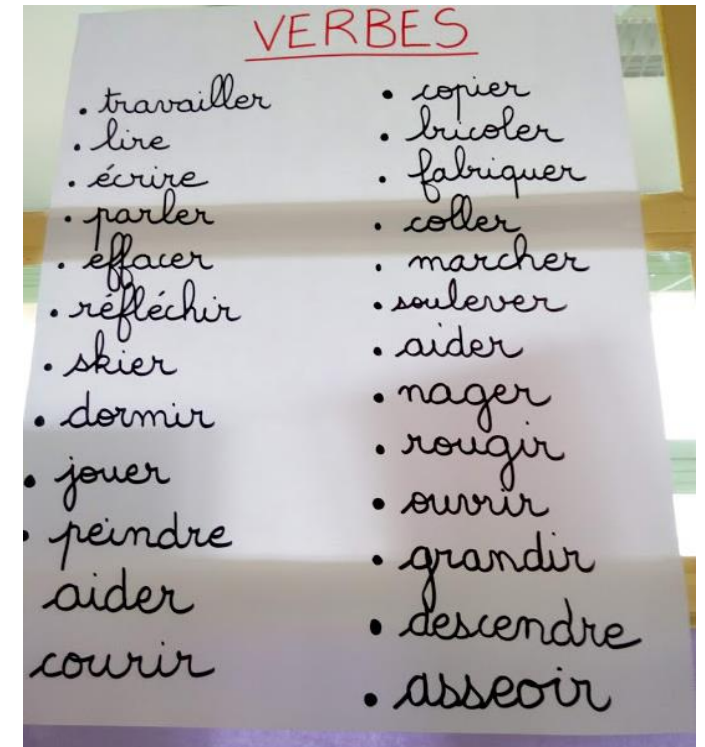 VERBES
. travailler
. lire
. écrire
. parler
. effacer
. réfléchir
. skier
. dormir
. jouer
. peindre
aider
courir
. copier
. bricoler
. fabriquer
. coller
. marcher
. soulever
. aider
. nager
. rougir
. ouvrir
. grandir
. descendre
. asseoir